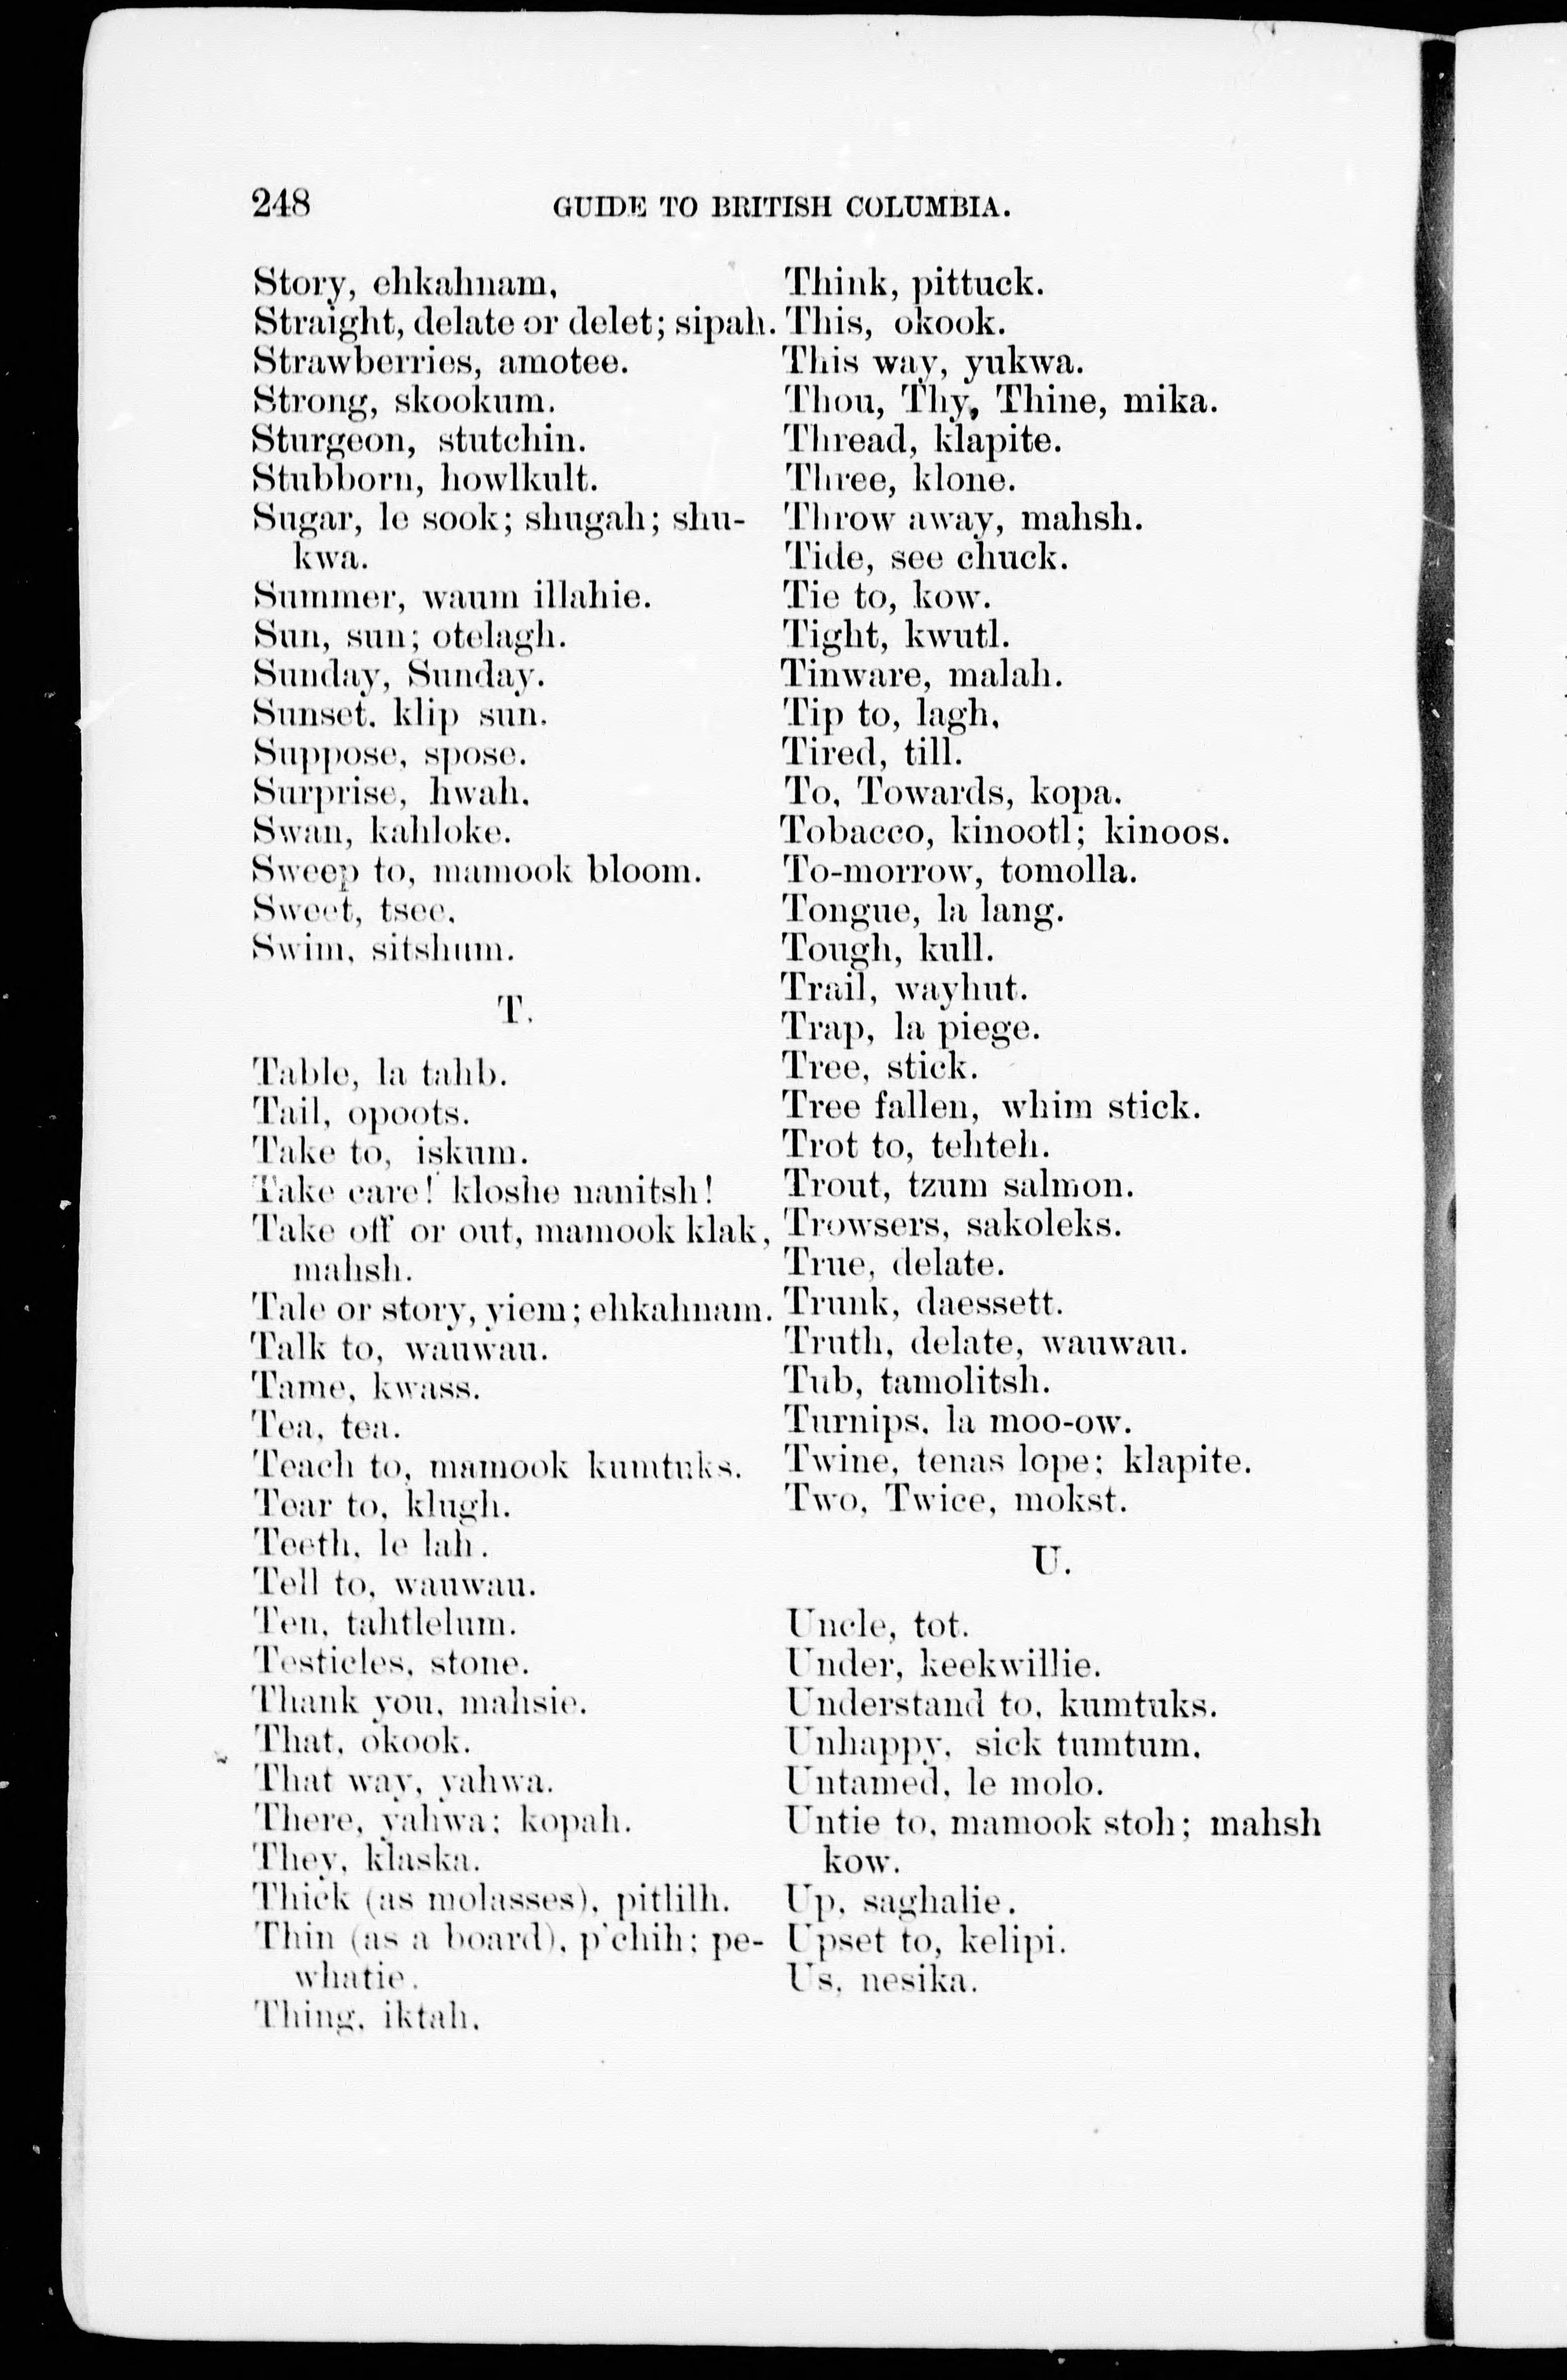 248 GUIDE TO BRITISH COLUMBIA.
Story, ehkahnam,
Straight, delate or delet; sipah.
Strawberries, amotee.
Strong, skookum.
Sturgeon, stutchin.
Stubborn, howlkult.
Sugar, le sook; shugah; shu-
kwa.
Summer, waum illahie.
Sun, sun; otelagh.
Sunday, Sunday.
Sunset. klip sun.
Suppose, spose.
Surprise, hwah.
Swan, kahloke.
Sweep to, mamook bloom.
Sweet, tsee.
Swim, sitshum.
T.
Table, la tahb.
Tail, opoots.
Take to, iskum.
Take care! kloshe nanitsh!
Take off or out, mamook klak,
mahsh.
Tale or story, yiem; ehkahnam.
Talk to, wauwau.
Tame, kwass.
Tea, tea.
Teach to, mamook kumtuks.
Tear to, klugh.
Teeth, le lah.
Tell to, wauwau.
Ten, tahtlelum.
Testicles, stone.
Thank you, mahsie.
That, okook.
That way, yahwa.
There, yahwa; kopah.
They, klaska.
Thick (as molasses), pitlilh.
Thin (as a board), p'chih; pe-
whatie.
Thing, iktah.
Think, pittuck.
This, okook.
This way, yukwa.
Thou, Thy, Thine, mika.
Thread, klapite.
Three, klone.
Throw away, mahsh.
Tide, see chuck.
Tie to, kow.
Tight, kwutl.
Tinware, malah.
Tip to, lagh,
Tired, till.
To, Towards, kopa.
Tobacco, kinootl; kinoos.
To-morrow, tomolla.
Tongue, la lang.
Tough, kull.
Trail, wayhut.
Trap, la piege.
Tree, stick.
Tree fallen, whim stick.
Trot to, tehteh.
Trout, tzum salmon.
Trowsers, sakoleks.
True, delate.
Trunk, daessett.
Truth, delate, wauwau.
Tub, tamolitsh.
Turnips, la moo-ow.
Twine, tenas lope; klapite.
Two, Twice, mokst.
U.
Uncle, tot.
Under, keekwillie.
Understand to, kumtuks.
Unhappy, sick tumtum.
Untamed, le molo.
Untie to, mamook stoh; mahsh
kow.
Up, saghalie.
Upset to, kelipi.
Us, nesika.